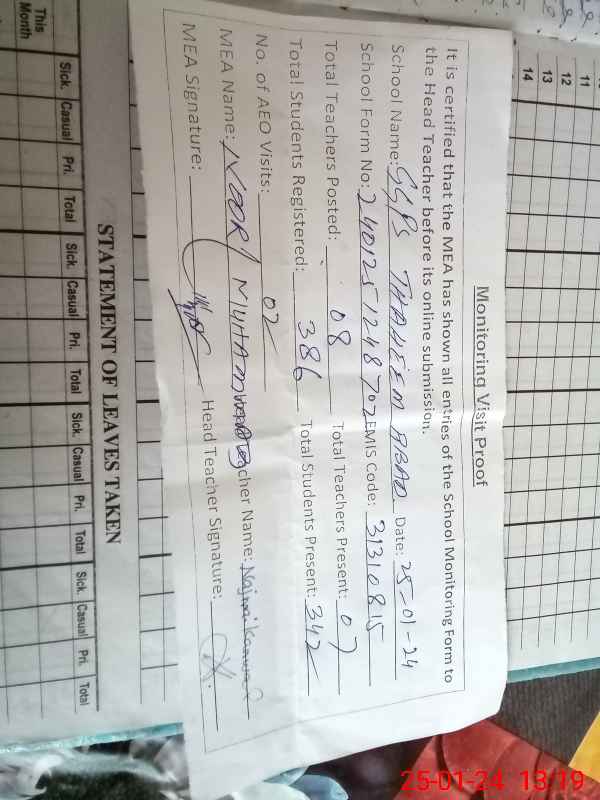 Monitoring Visit Proof
It is certified that the MEA has shown all entries of the School Monitoring Form to
the Head Teacher before its online submission.
School Name: GGPS THAHEEM ABAD Date: 25-01-24
School Form No: 240125124870 2 EMIS Code: 31310815
Total Teachers Posted: 08 Total Teachers Present: 07
Total Students Registered: 386 Total Students Present: 342
No. of AEO Visits: 02
MEA Name: NOOR MUHAMMAD cher Name: Najmi Kanwal
MEA Signature: Head Teacher Signature:
STATEMENT OF LEAVES TAKEN
This Month
Sick. Casual Pri. Total Sick. Casual Pri. Total Sick. Casual Pri. Total Sick. Casual Pri. Total
11
12
13
14
25-01-24 13:19